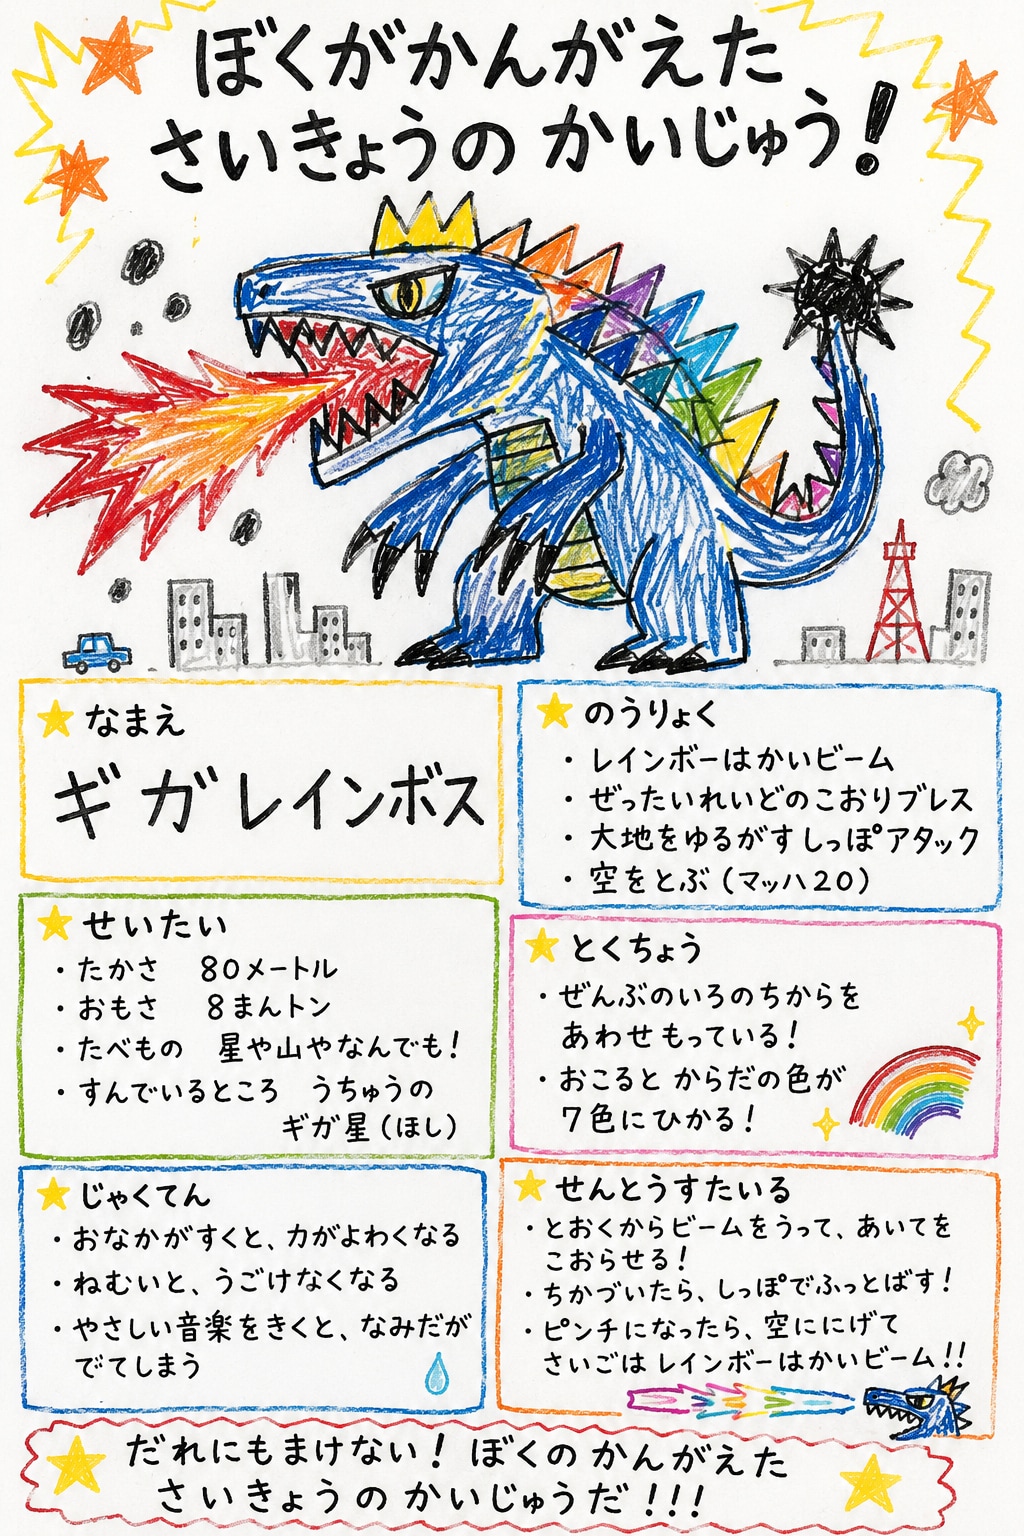 ぼくがかんがえた
さいきょうの かいじゅう!
なまえ
ギガレインボス
のうりょく
・レインボーはかいビーム
・ぜったいれいどのこおりブレス
・大地をゆるがすしっぽアタック
・空をとぶ(マッハ20)
せいたい
・たかさ 80メートル
・おもさ 8まんトン
・たべもの 星や山やなんでも!
・すんでいるところ うちゅうの
ギガ星(ほし)
とくちょう
・ぜんぶのいろのちからを
あわせもっている!
・おこると からだの色が
7色にひかる!
じゃくてん
・おなかがすくと、力がよわくなる
・ねむいと、うごけなくなる
・やさしい音楽をきくと、なみだが
でてしまう
せんとうすたいる
・とおくからビームをうって、あいてを
こおらせる!
・ちかづいたら、しっぽでふっとばす!
・ピンチになったら、空ににげて
さいごは レインボーはかいビーム!!
だれにもまけない! ぼくの かんがえた
さいきょうの かいじゅうだ!!!